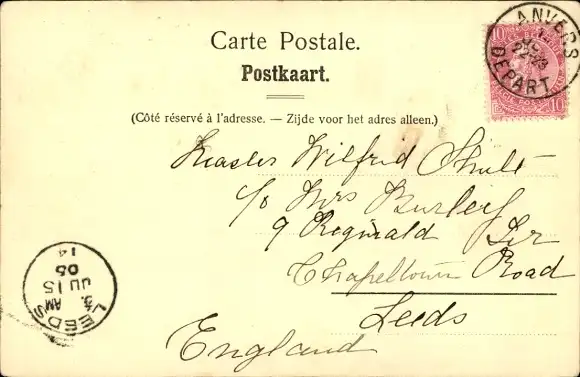 Carte Postale.
Postkaart.
(Côté réservé à l'adresse. — Zijde voor het adres alleen.)
ANVERS
DEPART
10 10
Master Wilfrid Shult
c/o Mrs Burley
9 Reginald Ter
Chapeltown Road
Leeds
England
LEEDS
AM
JU 15
05
14